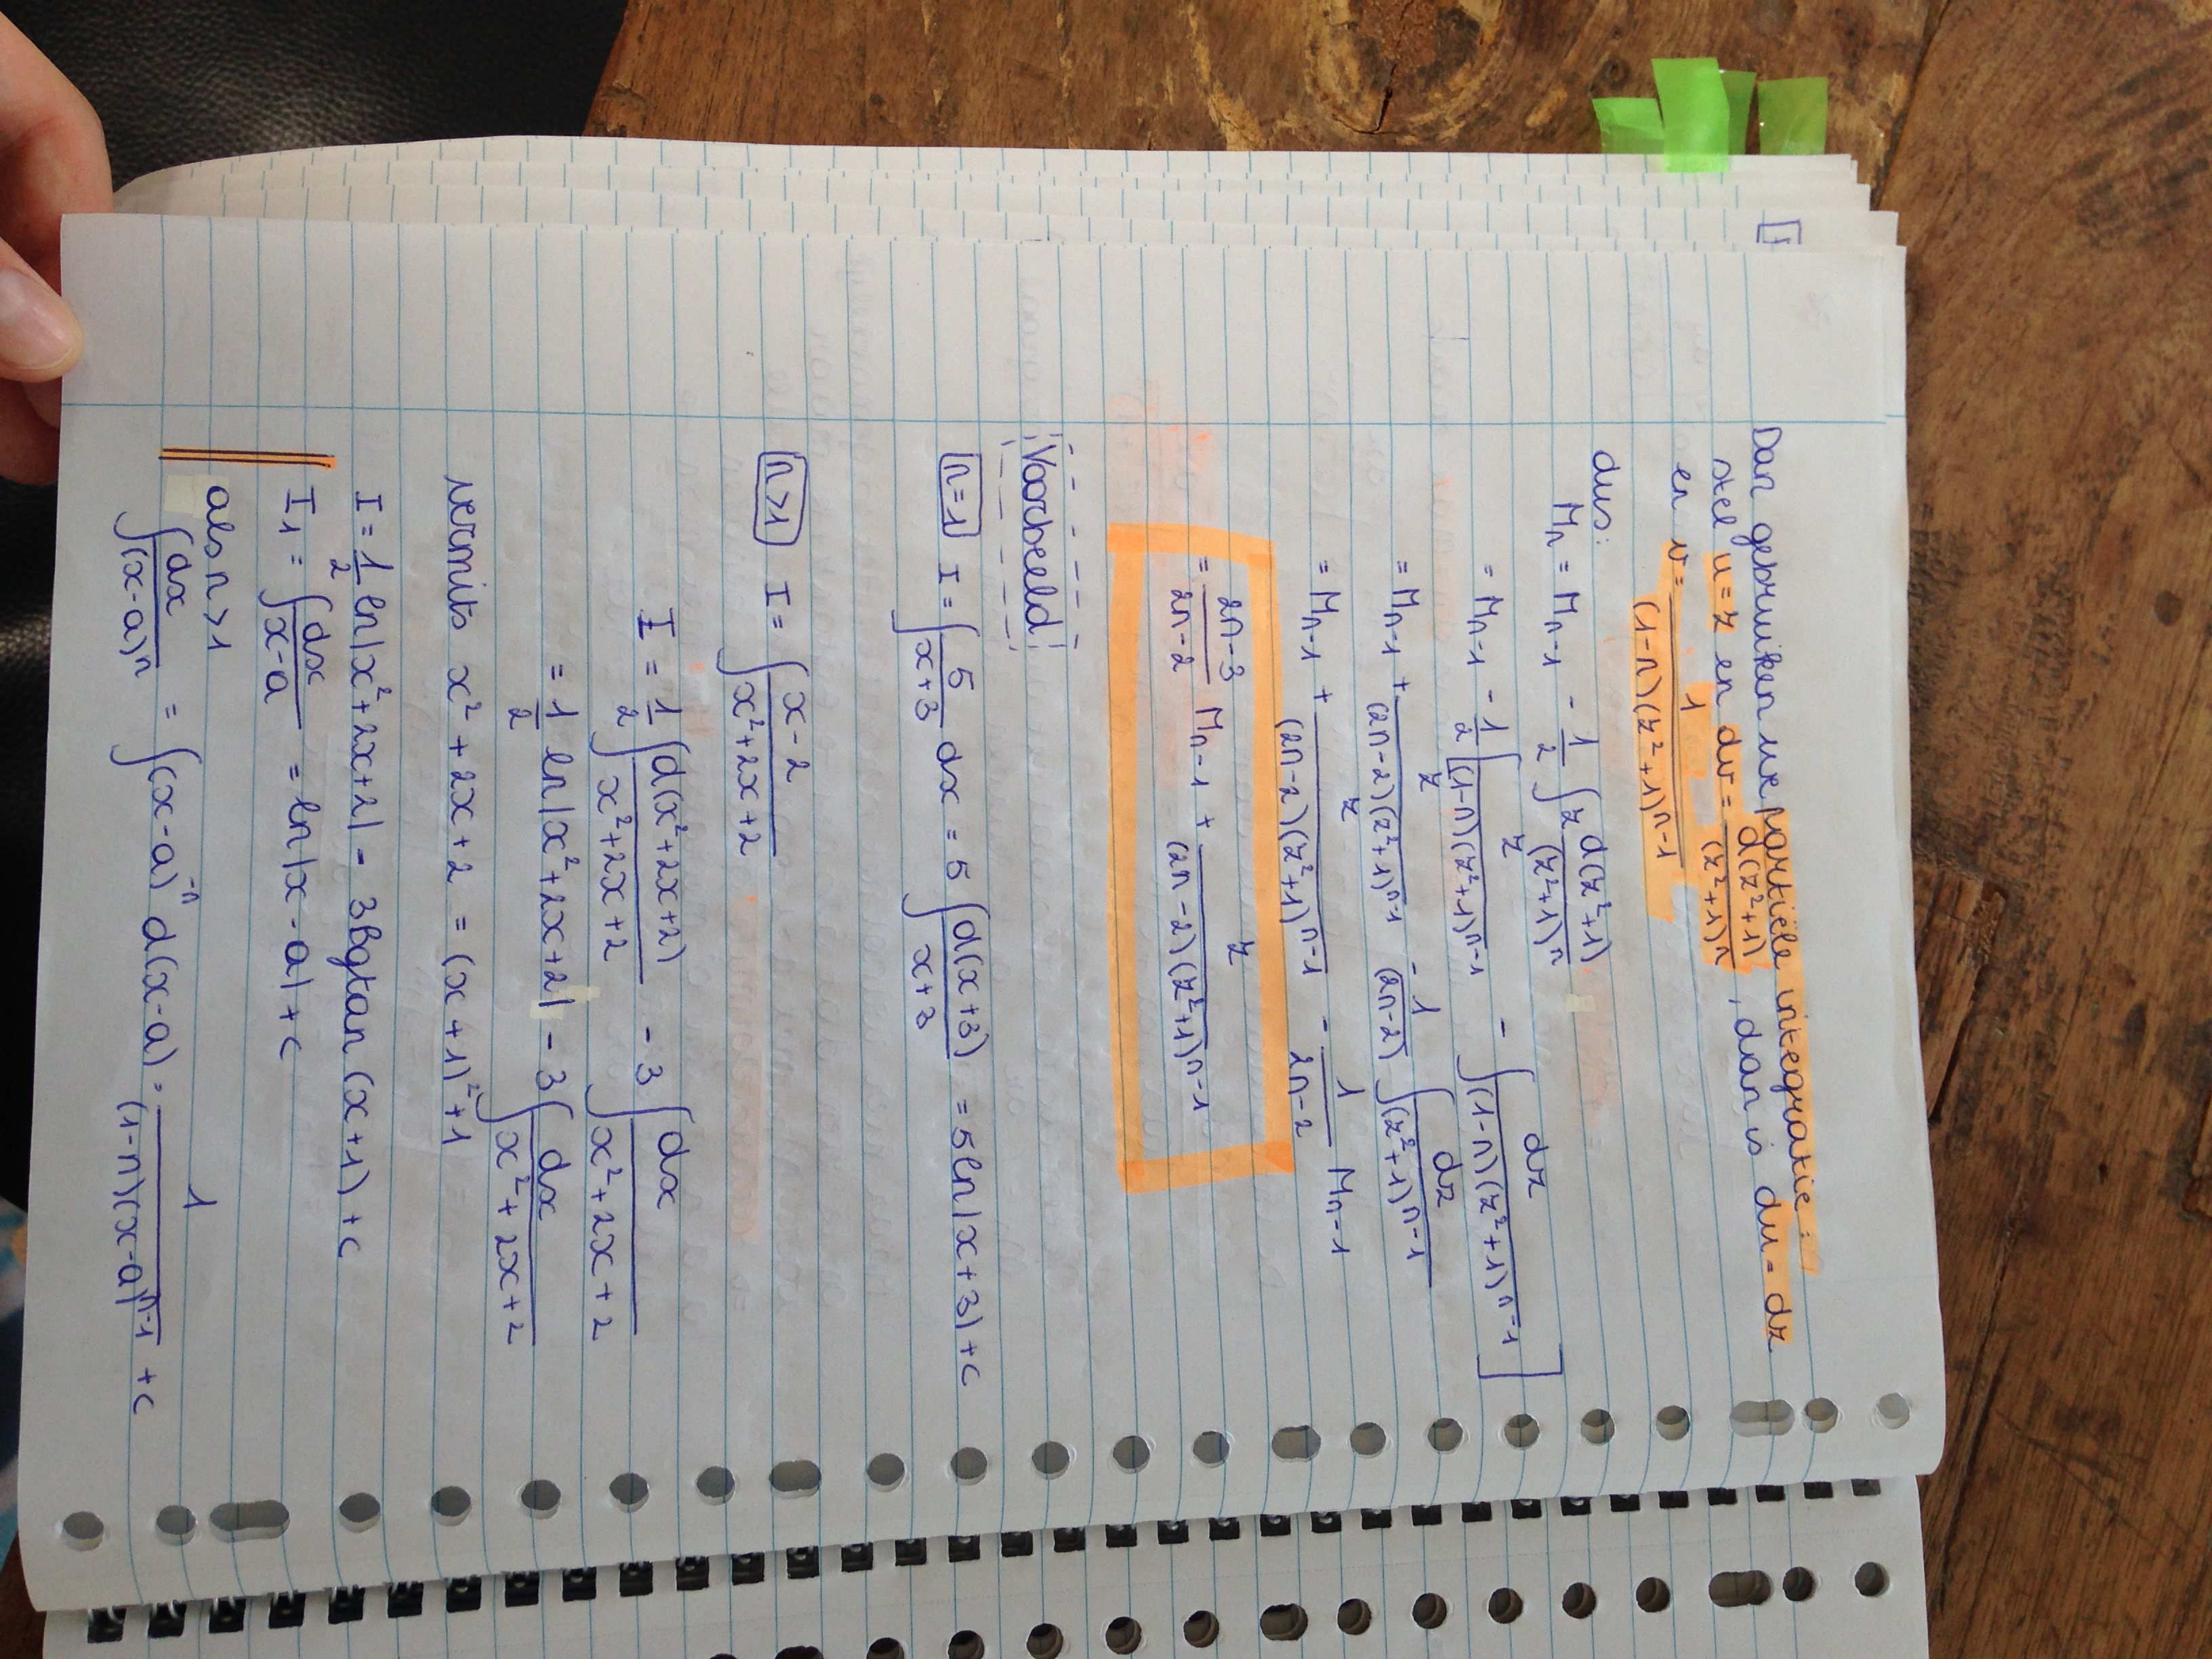 Dan gebruiken we partiële integratie:
stel u = z en dv = d(z²+1)/(z²+1)ⁿ , dan is du = dz
en v = 1/((1-n)(z²+1)ⁿ⁻¹)
dus:
Mₙ = Mₙ₋₁ - 1/2 ∫ z d(z²+1)/(z²+1)ⁿ
= Mₙ₋₁ - 1/2 [ z/((1-n)(z²+1)ⁿ⁻¹) - ∫ dz/((1-n)(z²+1)ⁿ⁻¹) ]
= Mₙ₋₁ + z/((2n-2)(z²+1)ⁿ⁻¹) - 1/(2n-2) ∫ dz/(z²+1)ⁿ⁻¹
= Mₙ₋₁ + z/((2n-2)(z²+1)ⁿ⁻¹) - 1/(2n-2) Mₙ₋₁
= (2n-3)/(2n-2) Mₙ₋₁ + z/((2n-2)(z²+1)ⁿ⁻¹)
Voorbeeld
n=1 I = ∫ 5/(x+3) dx = 5 ∫ d(x+3)/(x+3) = 5 ln|x+3| + c
n>1 I = ∫ (x-2)/(x²+2x+2)
I = 1/2 ∫ d(x²+2x+2)/(x²+2x+2) - 3 ∫ dx/(x²+2x+2)
= 1/2 ln|x²+2x+2| - 3 ∫ dx/(x²+2x+2)
vermits x² + 2x + 2 = (x+1)² + 1
I = 1/2 ln|x²+2x+2| - 3 Bgtan (x+1) + c
I₁ = ∫ dx/(x-a) = ln|x-a| + c
als n>1
∫ dx/(x-a)ⁿ = ∫ (x-a)⁻ⁿ d(x-a) = 1/((1-n)(x-a)ⁿ⁻¹) + c